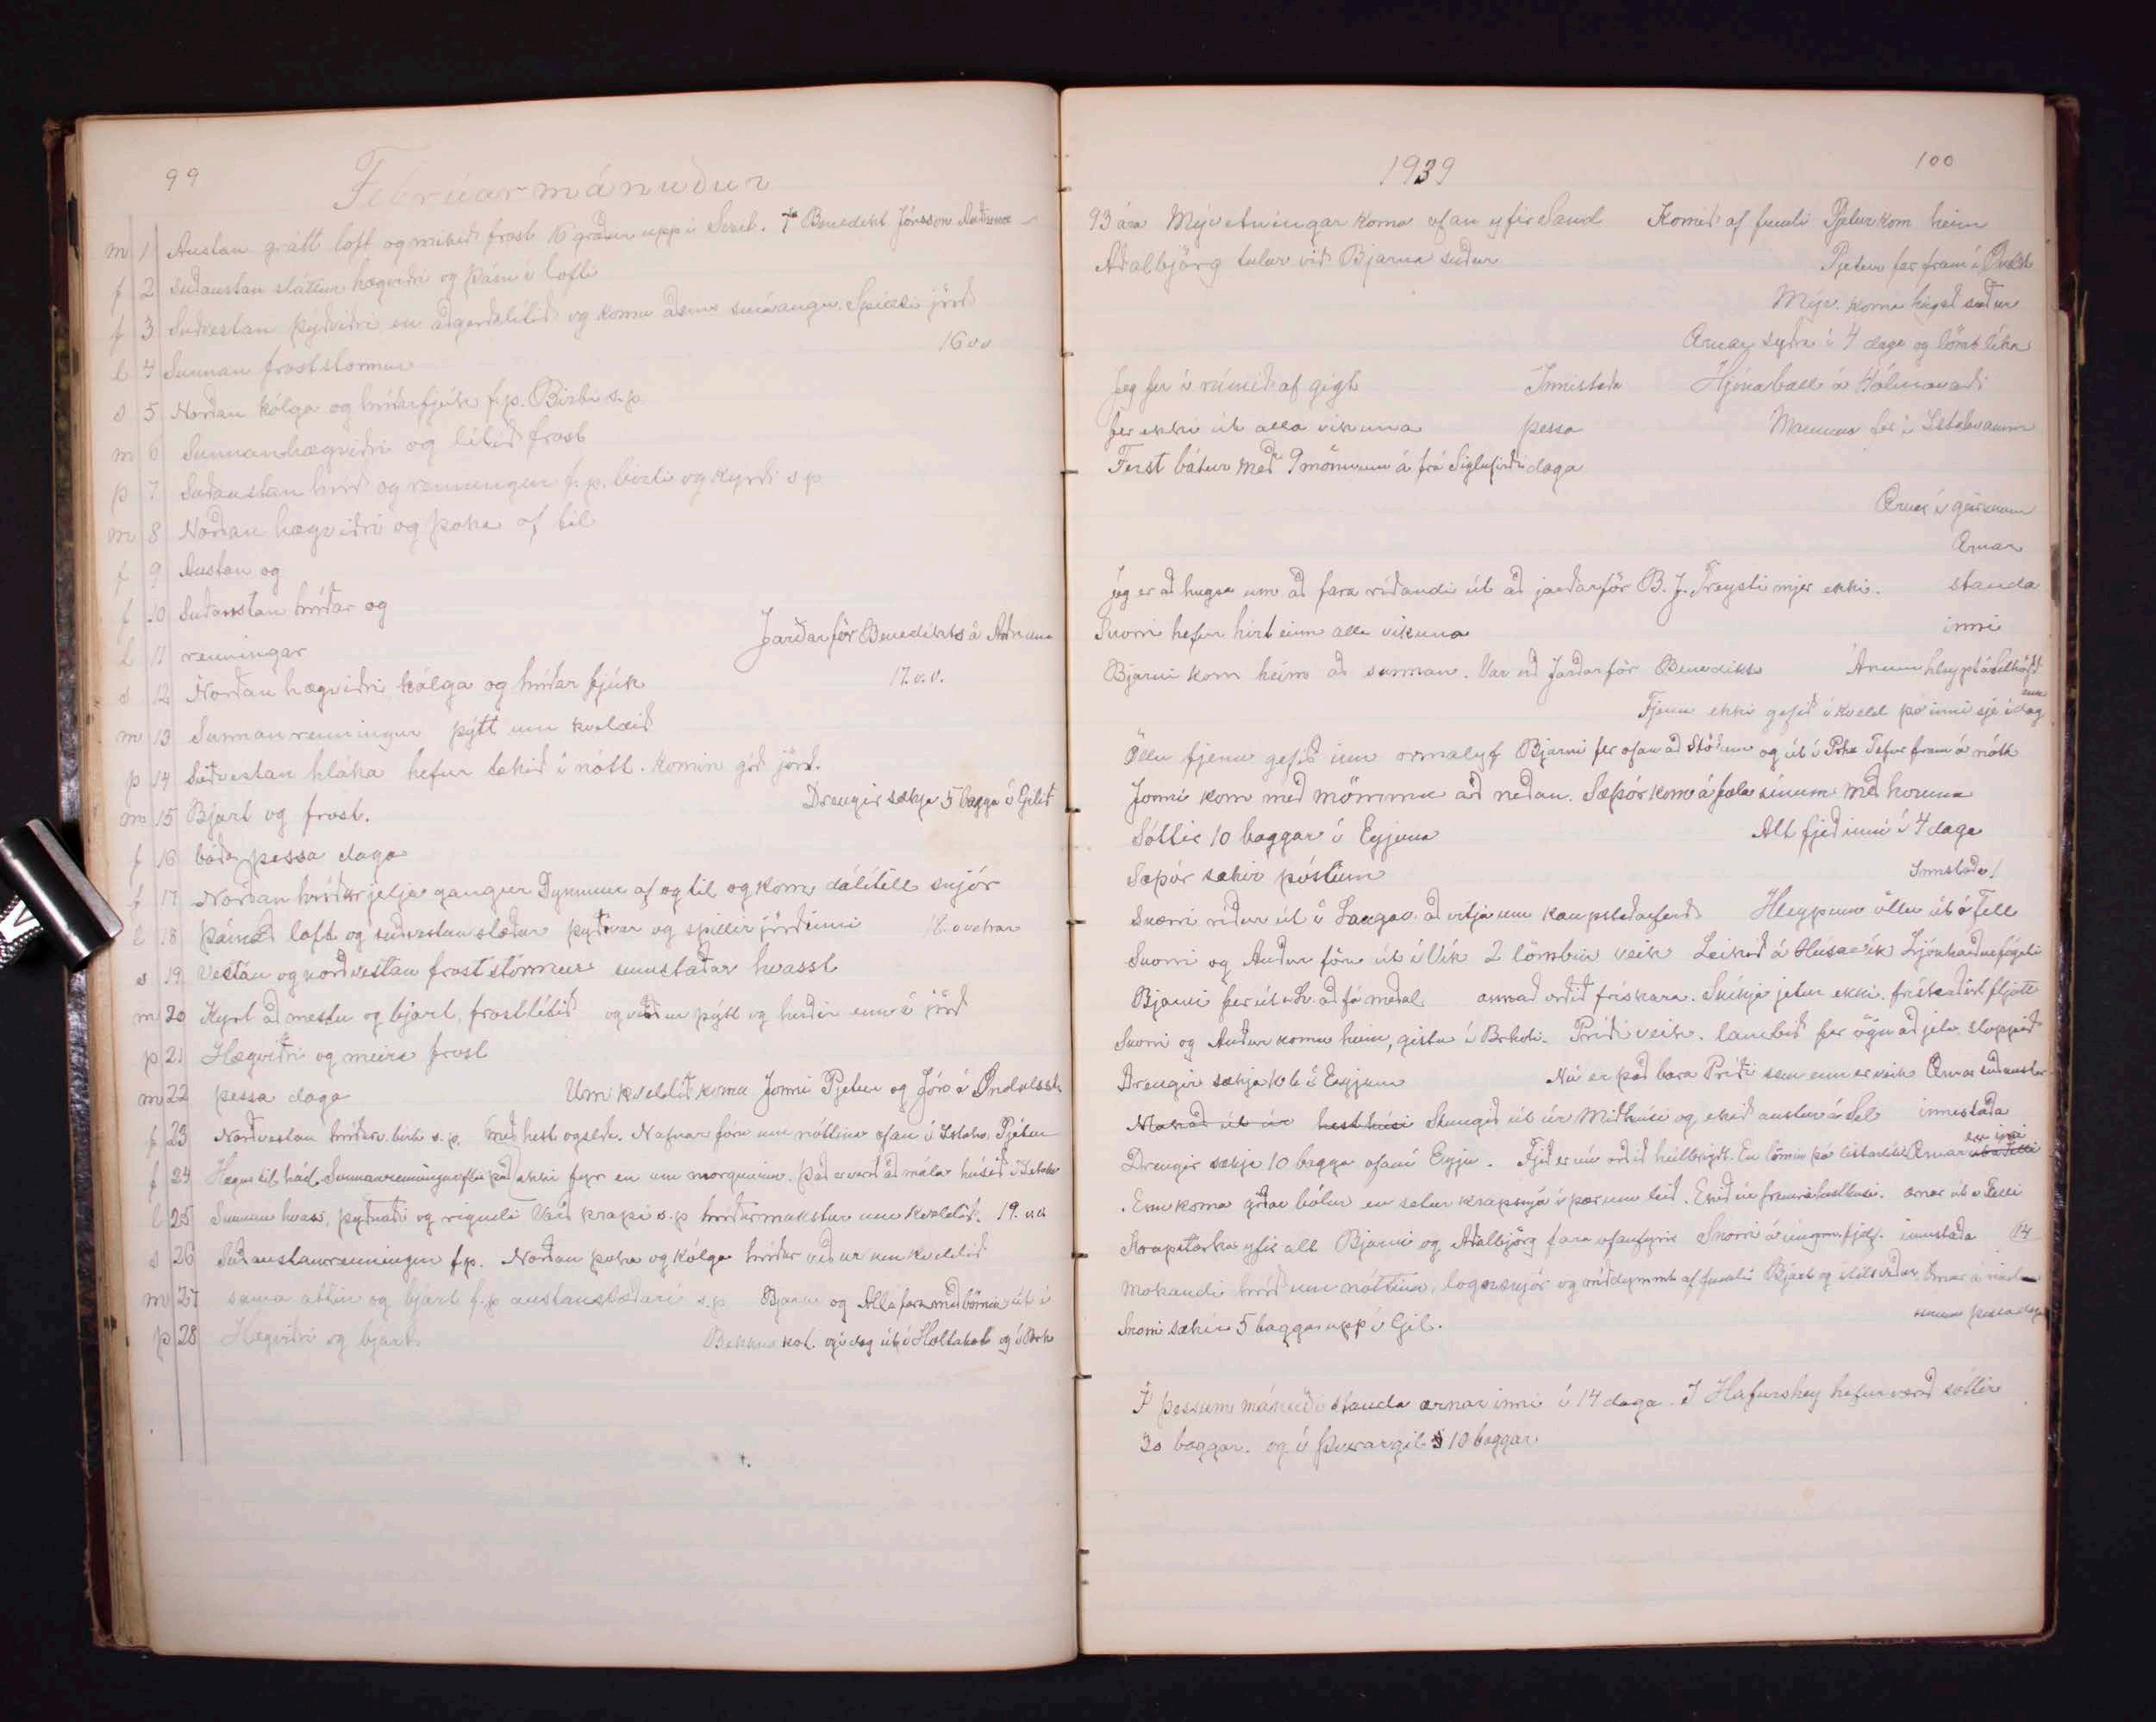 99
Febrúarmánuður
m 1 Austan grátt loft og mikið frost 16 gráður upp í Sveit. † Benedikt Jónsson Auðnum
f 2 Suðaustan sláttur hægviðri og þásu í lofti
f 3 Suðvestan þýðviðri en aðgerðalítið og koma aðeins snávangar. Spillir jörð
l 4 Sunnan froststormur 16 v v
s 5 Norðan kólga og hríðarfjúk f.p. Birti s.p.
m 6 Sunnanhægviðri og lítið frost
þ 7 Suðaustan hríð og renningur f.p. birti og kyrði s p
m 8 Norðan hægviðri og þoka of til
f 9 Austan og
f 10 Suðaustan hríðar og
l 11 renningar Jarðarför Benedikts á Auðnum
s 12 Norðan hægviðri kólga og hríðar fjúk 17. v. v.
m 13 Sunnanrenningur þýtt um kveldið
þ 14 Suðvestan hláka hefur tekið í nótt. Komin góð jörð.
m 15 Bjart og frost. Drengir sækja 5 bagga í Gilið
f 16 báða þessa daga
f 17 Norðan hríðarjeljagangur Dymmur af og til og kom dálítill snjór
l 18 þáinað loft og suðvestan stæður þyðvar og spillir jörðinni 18. v vetrar
s 19 Vestan og norðvestan froststormur sumstaðar hvasst
m 20 Kyrt að mestu og bjart, frostlítið og víðar þýtt og heiðir enn á jörð
þ 21 Hægviðri og meira frost
m 22 þessa daga Um kveldið koma Jonni Pjetur og Jóro á Öndólsst.
f 23 Norðvestan hríðar. birti s.p. með hest og sleða. Nafnar fóru um nóttina ofan í Ystahv. Pjetur
f 24 Hægur til hád. Sunnanrenningur eftir það ekki fyr en um morguninn. það er verið að mála húsið í Ystahv
l 25 Sunnan hvass, þyðnaði og rigndi Varð krapi s.p hríðarmakstur um kveldið. 19. v.v
s 26 Suðaustanrenningur f.p. Norðan þoka og kólga hríðar veður um kveldið
m 27 sama áttin og bjart f.p austanstæðari s.p Bjarni og Alla fara með börnin út í
þ 28 Hægviðri og bjart. Bekkna kot. og í dag út í Holtakot og í Brh
1939
100
93 ára Mývetningar koma ofan yfir Sand Komið af fundi Pjetur kom heim
Aðalbjörg talar við Bjarna suður Pjetur fer fram í Önd
Mýv. koma hingað suður
Ærnar syðra í 4 daga og lömb líka
Jeg fer í rúmið af gigt Innistaða Hjónaball á Hólmavaði
fer ekki út alla vikuna þessa
Ferst bátur með 9 mönnum á frá Siglufirði daga
Ærnar í girðunum
Ærnar
Jeg er að hugsa um að fara ríðandi út að jarðarför B. J. Treysti mjer ekki. standa
Snorri hefur hirt einn alla vikuna inni
Bjarni kom heim að sunnan. Var við Jarðarför Benedikts Ánum hleypt á Selhöfð
Fjenu ekki gefið í kveld þó inni sje í dag
Öllu fjenu gefið inn ormalyf Bjarni fer ofan að Stöðum og út í Presthv Tefur fram á nótt
Jonni kom með mömmu að neðan. Sæþór kom á fola sínum með honum
Sóttir 10 baggar í Eyjuna Alt fjeð inni í 4 daga
Sæþór sækir póstinn Innstaða!
Snorri ríður út í Laugav. að vitja um kaupstaðarferð Hleypum öllu út á Fell
Snorri og Auður fóru út í Vík 2 lömbin veik Leikið á Húsavík Ljenharður fógeti
Bjarni fer út í Lv. að fá meðal annað orðið frískara. Skikja jetur ekki. frískaðist fljótt
Snorri og Auður koma heim, gista í Brhoti. Príði veik. lambið fer ögn að jeta sloppið
Drengir sækja 10 b í Eyjuna Nú er það bara Príði sem enn er veik Ærnar suðaustur
Mokað út úr hesthúsi Stungið út úr Miðhúsi og ekið austur á Sel innistaða
Drengir sækja 10 bagga ofaní Eyju. Fjeð er nú orðið heilbrigt. En lömin þó listarlítil Ærnar er inni
Enn koma góðar bólur en setur krapsnjó í þær um leið. Ekið úr fremra hesthúsi. ærnar úti á Felli
Krapstorka yfir alt Bjarni og Aðalbjörg fara ofanfyrir Snorri á ungm.fjel. innistaða 14
Mokandi hríð um nóttina, lognsnjór og niðdymmt af fundi Bjart og stilt veður Ærnar á
Snorri sækir 5 bagga upp í Gil. þessa daga
Í þessum mánuði standa ærnar inni í 14 daga. Í Hafurshey hefur verið sóttir
30 baggar. og í Þverargil 10 baggar